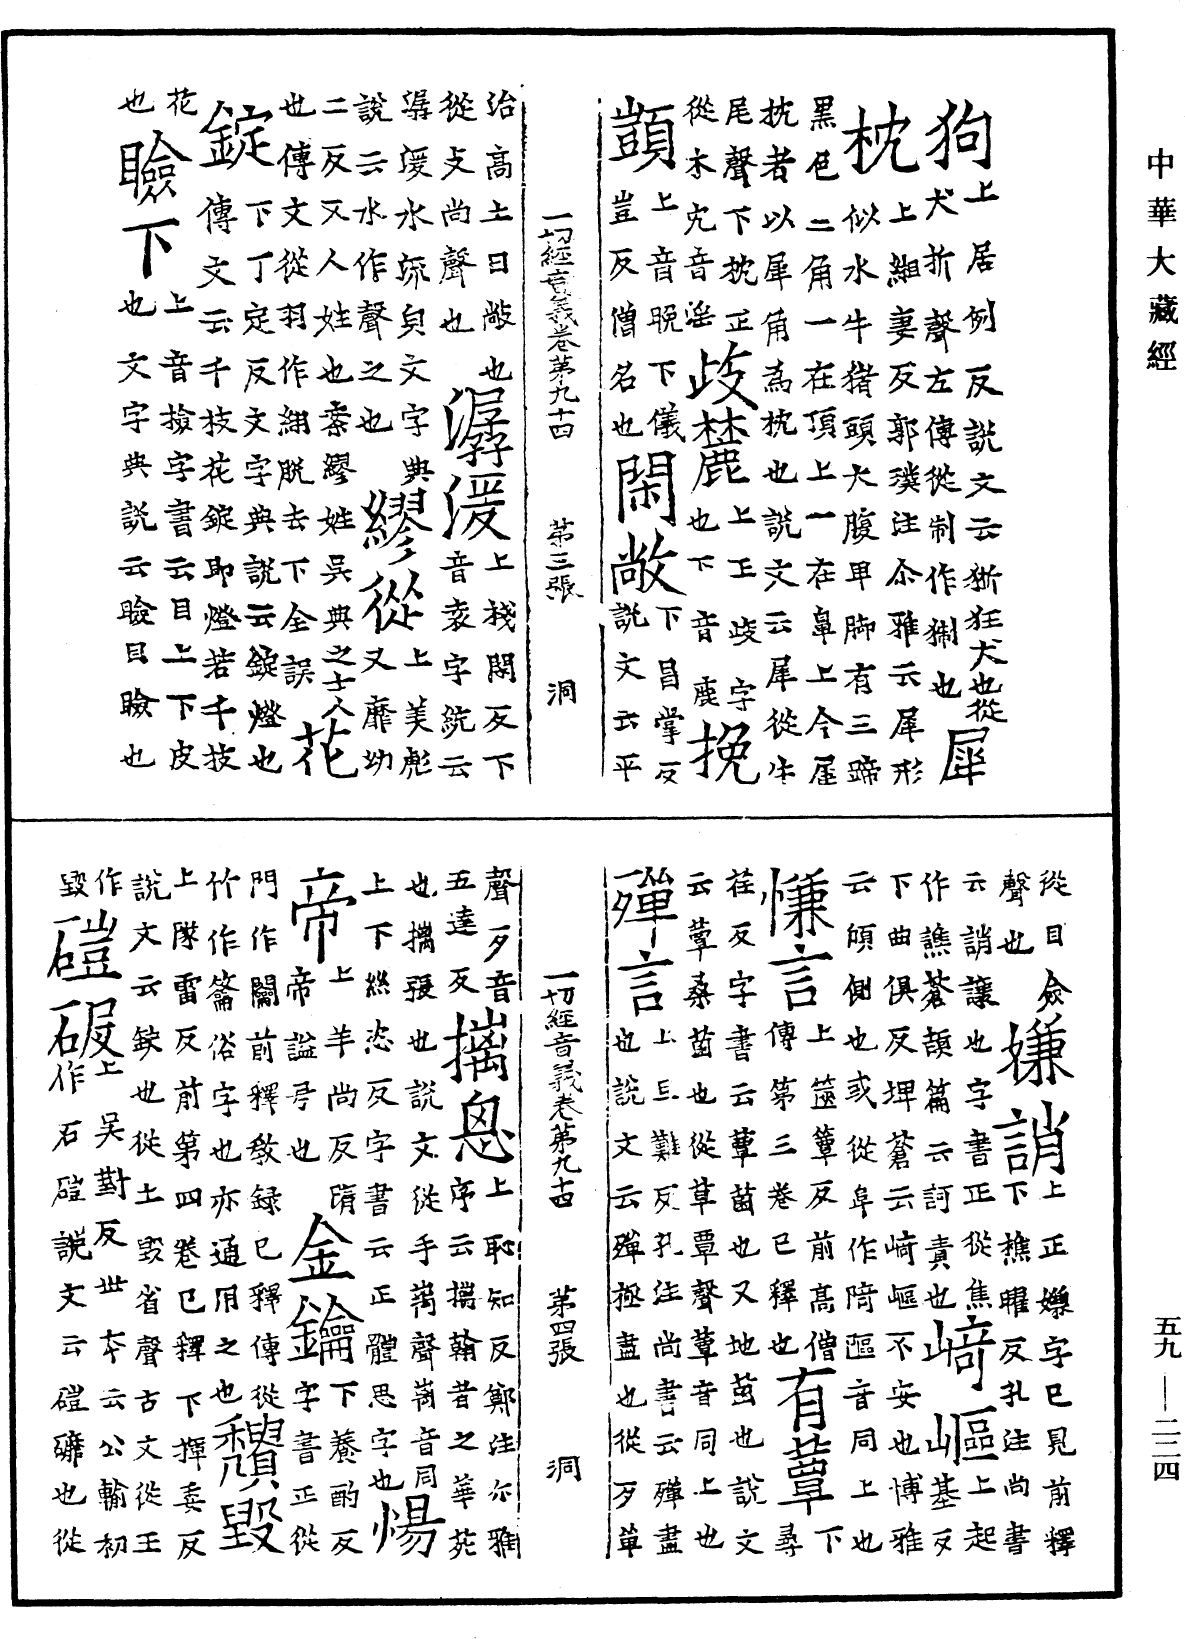 中華大藏經
狗上居例反說文云狾狂犬也從
犬折聲左傳從制作猘也犀
枕上細妻反郭璞注尒雅云犀形
似水牛猪頭大腹卑脚有三蹄
黑色二角一在頂上一在鼻上今
枕者以犀角為枕也說文云犀從牛
尾聲下枕正從木冘音淫歧麓上正歧字也下音鹿挽
顗上音晚下儀豈反僧名也閑敞下昌掌反說文云平
一切經音義卷第九十四　第三張　洞
治高土曰敞也從攴尚聲也潺湲上棧閑反下音袁字統云
潺湲水流皃文字典說云水作聲之也繆從上美彪又靡幼
二反又人姓也案繆姓吳典之士人
也傳文從羽作翃脫去下全誤花
錠下丁定反文字典說云錠燈也
傳文云千枝花錠即燈若千技
花也瞼下上音撿字書云目上下皮
也文字典說云瞼目瞼也
從目僉聲也嫌誚上正嫌字已見前釋
下樵曜反孔注尚書
云誚讓也字書正從焦
作譙蒼頡篇云訶責也崎嶇上起基反
下曲俱反埤蒼云崎嶇不安也博雅
云傾側也或從阜作陭䧢音同上也
慊言上篋簟反前高僧傳第三卷已釋也有蕈下尋
荏反字書云蕈菌也又地菌也說文
云蕈桑菌也從草覃聲蕈音同上也
殫言上旦難反孔注尚書云殫盡
也說文云殫極盡也從歹單
一切經音義卷第九十四　第四張　洞
聲歹音五達反摛恖上恥知反鄭注尒雅
序云摛翰者之華苑
也摛張也說文從手离聲离音同
上下絲恣反字書云正體思字也惕
帝上羊尚反隋帝謚号也金鑰下養酌反字書正從
門作闟前釋教録已釋傳從
竹作籥俗字也亦通用之也穨毀
上隊雷反前第四卷已釋下揮委反
說文云缺也從土毀省聲古文從王
作毀磑䃼上吳對反世本云公輸初
作石磑說文云磑䃺也從
五九—二二四